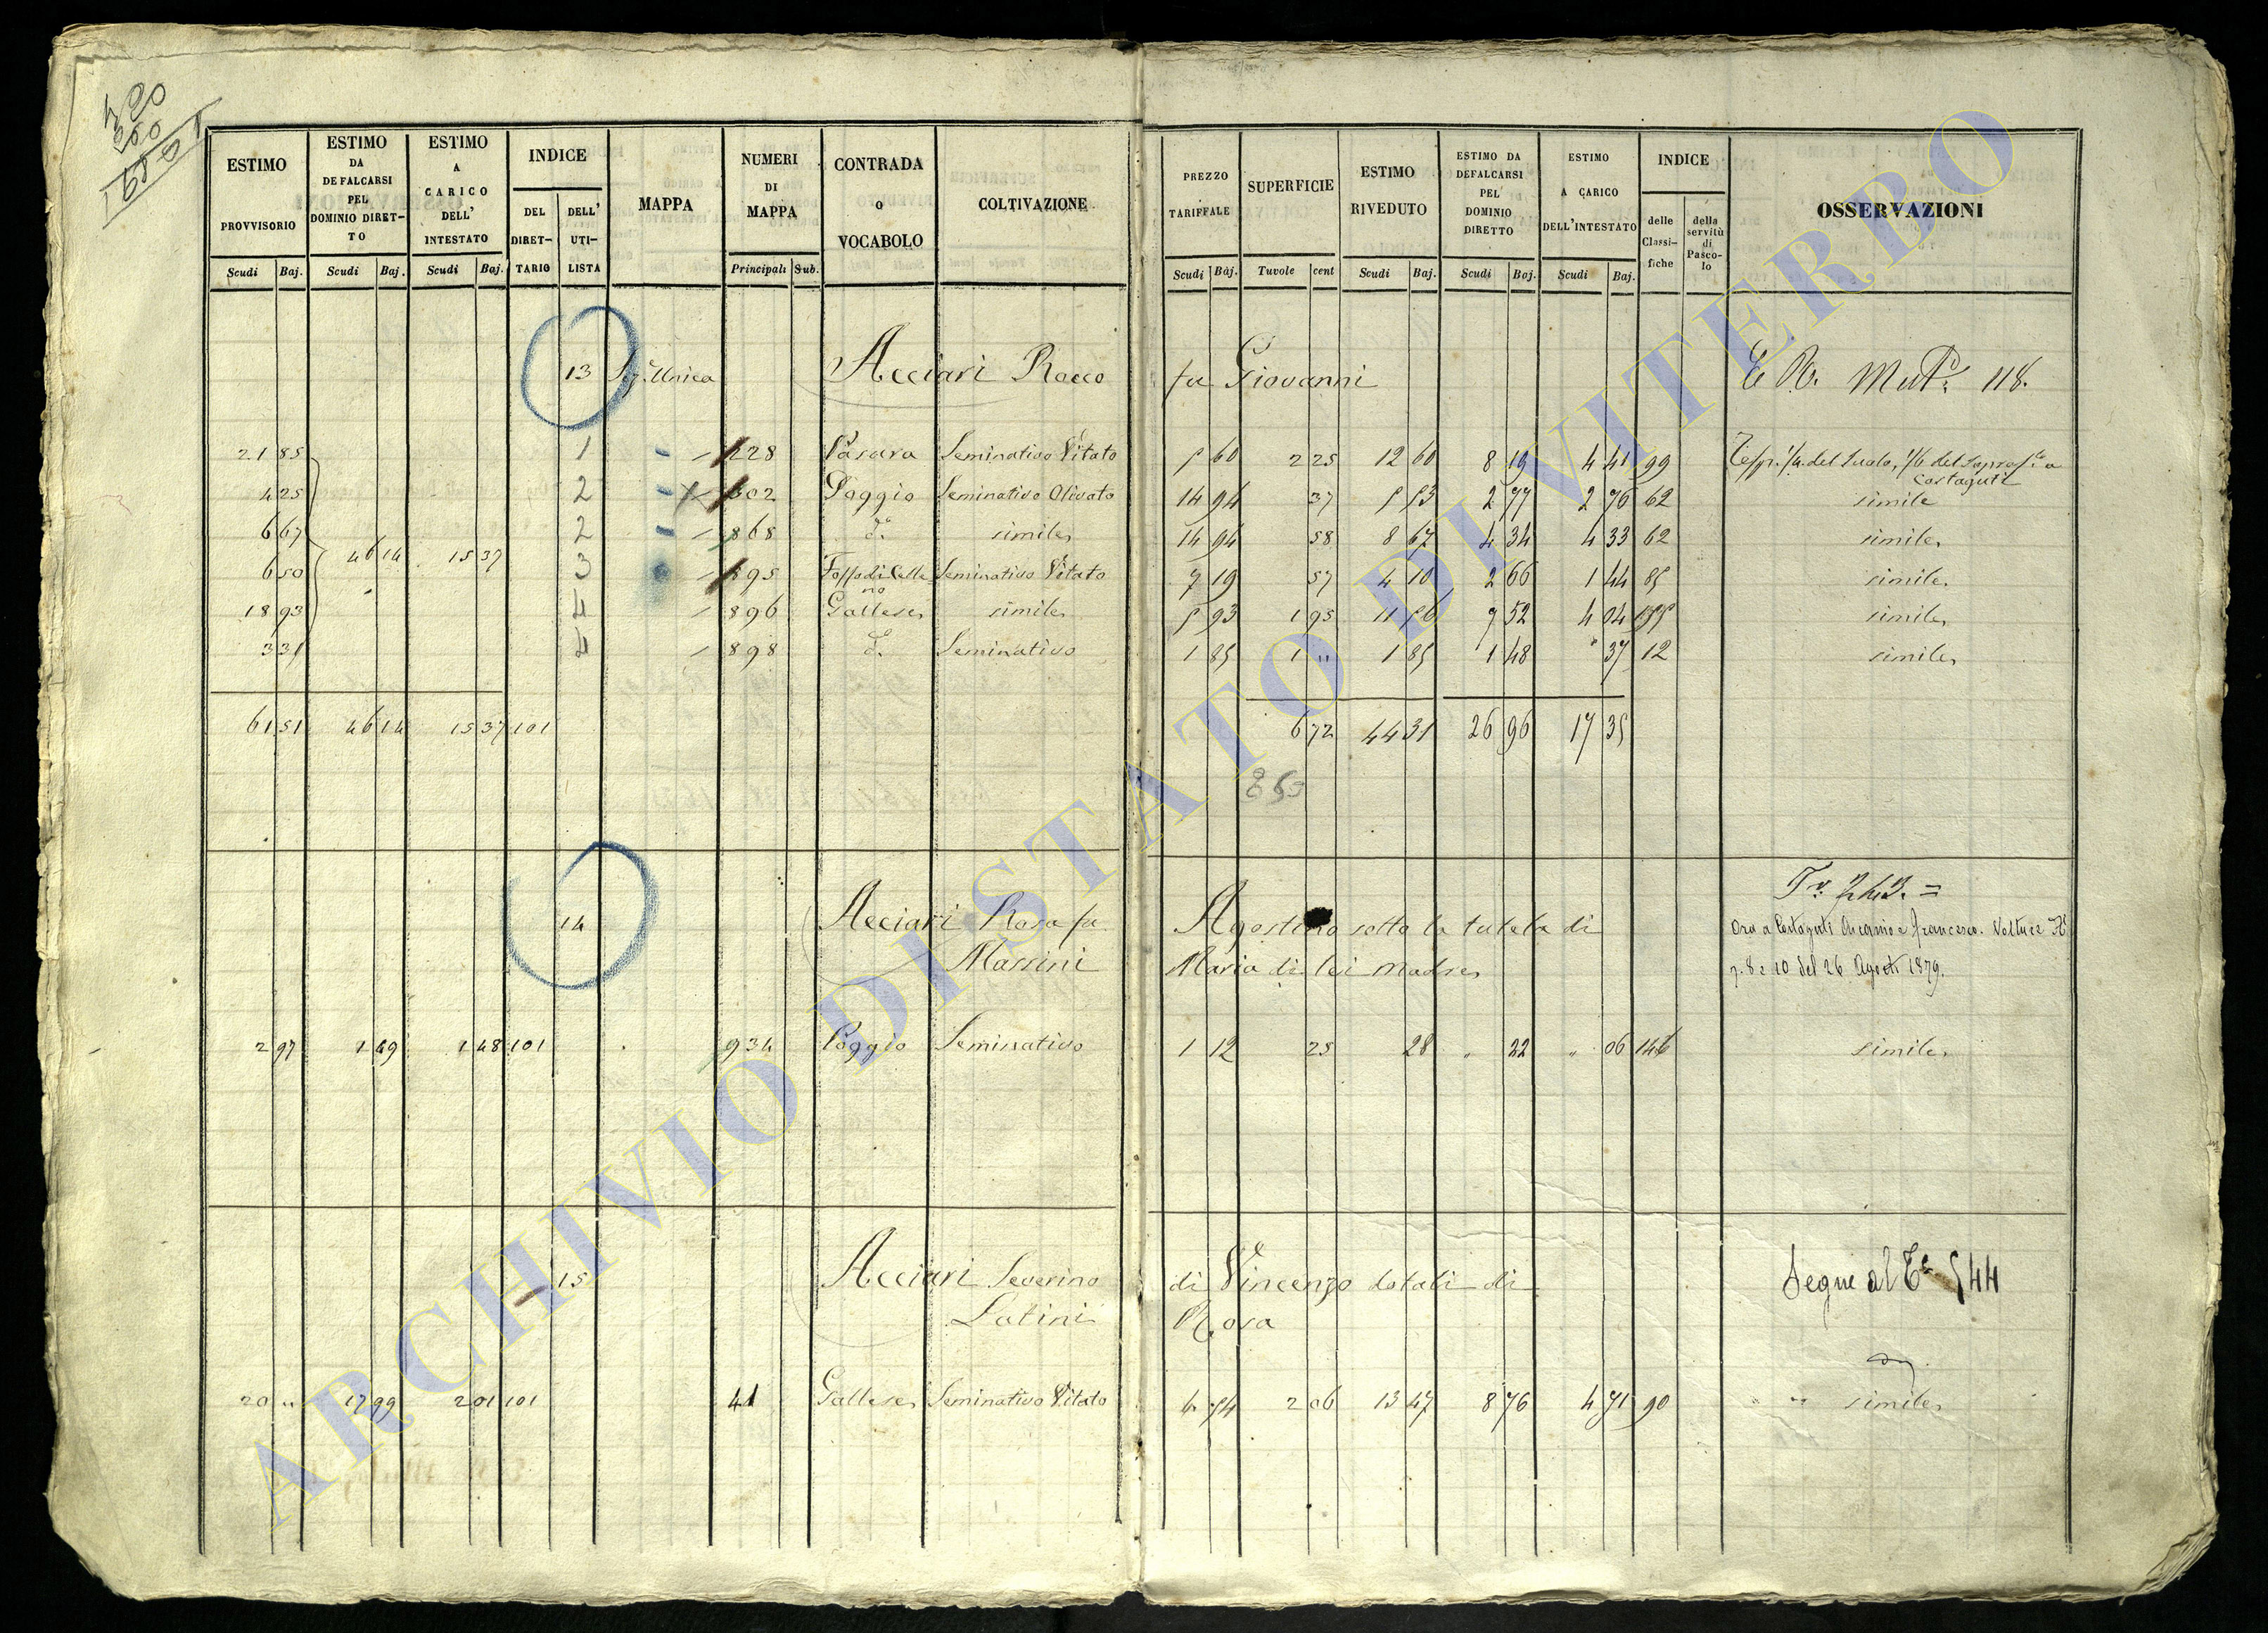 ESTIMO PROVVISORIO Scudi Baj.
ESTIMO DA DEFALCARSI PEL DOMINIO DIRETTO Scudi Baj.
ESTIMO A CARICO DELL' INTESTATO Scudi Baj.
INDICE DEL DIRETTARIO DELL' UTILISTA
MAPPA
NUMERI DI MAPPA Principali Sub.
CONTRADA O VOCABOLO
COLTIVAZIONE
PREZZO TARIFFALE Scudi Baj.
SUPERFICIE Tavole cent
ESTIMO RIVEDUTO Scudi Baj.
ESTIMO DA DEFALCARSI PEL DOMINIO DIRETTO Scudi Baj.
ESTIMO A CARICO DELL'INTESTATO Scudi Baj.
INDICE delle Classifiche della servitù di Pascolo
OSSERVAZIONI
13 Sez.e Unica Acciari Rocco fu Giovanni
Mut. 118.
21 85 1 228 Pasara Seminativo Vitato 5 60 2 25 12 60 8 19 4 41 99
Castaguti
4 25 2 302 Poggio Seminativo Olivato 14 94 37 5 53 2 77 2 76 62 simile
6 67 2 868 d.o simile 14 94 58 8 67 4 34 4 33 62 simile
46 14 15 37
6 50 3 895 Seminativo Vitato 7 19 57 4 10 2 66 1 44 85 simile
18 93 4 896 Gallese simile 5 93 1 95 11 56 7 52 4 04 simile
3 31 4 898 d.o Seminativo 1 85 1 " 1 85 1 48 " 37 12 simile
61 51 46 14 15 37 101 6 72 44 31 26 96 17 35
14 Acciari Rosa fu Agostino sotto la tutela di
Massini Maria di lei madre
Ora a Costaguti Ascanio e Francesco. Volture
p. 8 e 10 del 26 Agosto 1879.
2 97 1 49 1 48 101 934 Poggio Seminativo 1 12 25 28 " 22 " 06 146 simile
15 Acciari Severino di Vincenzo dotali di
Latini Rosa
Segue al 544
20 " 17 99 2 01 101 41 Gallese Seminativo Vitato 6 54 2 06 13 47 8 76 4 71 90 simile
ARCHIVIO DI STATO DI VITERBO